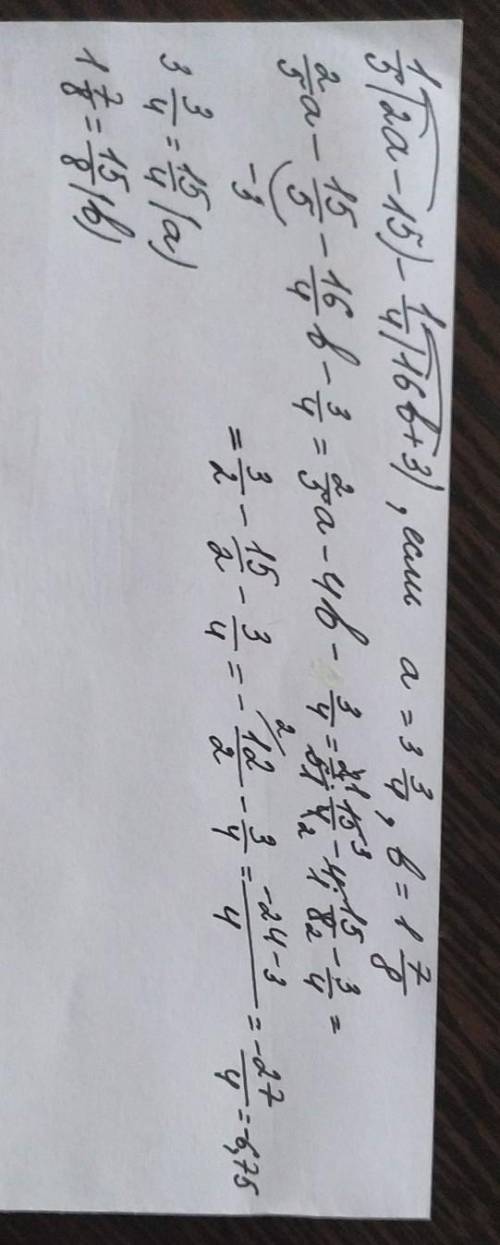 1/5(2a - 15) - 1/4(16b + 3), если a = 3 3/4, b = 1 7/8
2/5a - 15/5 - 16/4b - 3/4 = 2/5a - 4b - 3/4 = 2/5 · 15/4 - 4 · 15/8 - 3/4 =
-3
= 3/2 - 15/2 - 3/4 = - 12/2 - 3/4 = (-24-3)/4 = -27/4 = -6,75
3 3/4 = 15/4 (a)
1 7/8 = 15/8 (b)